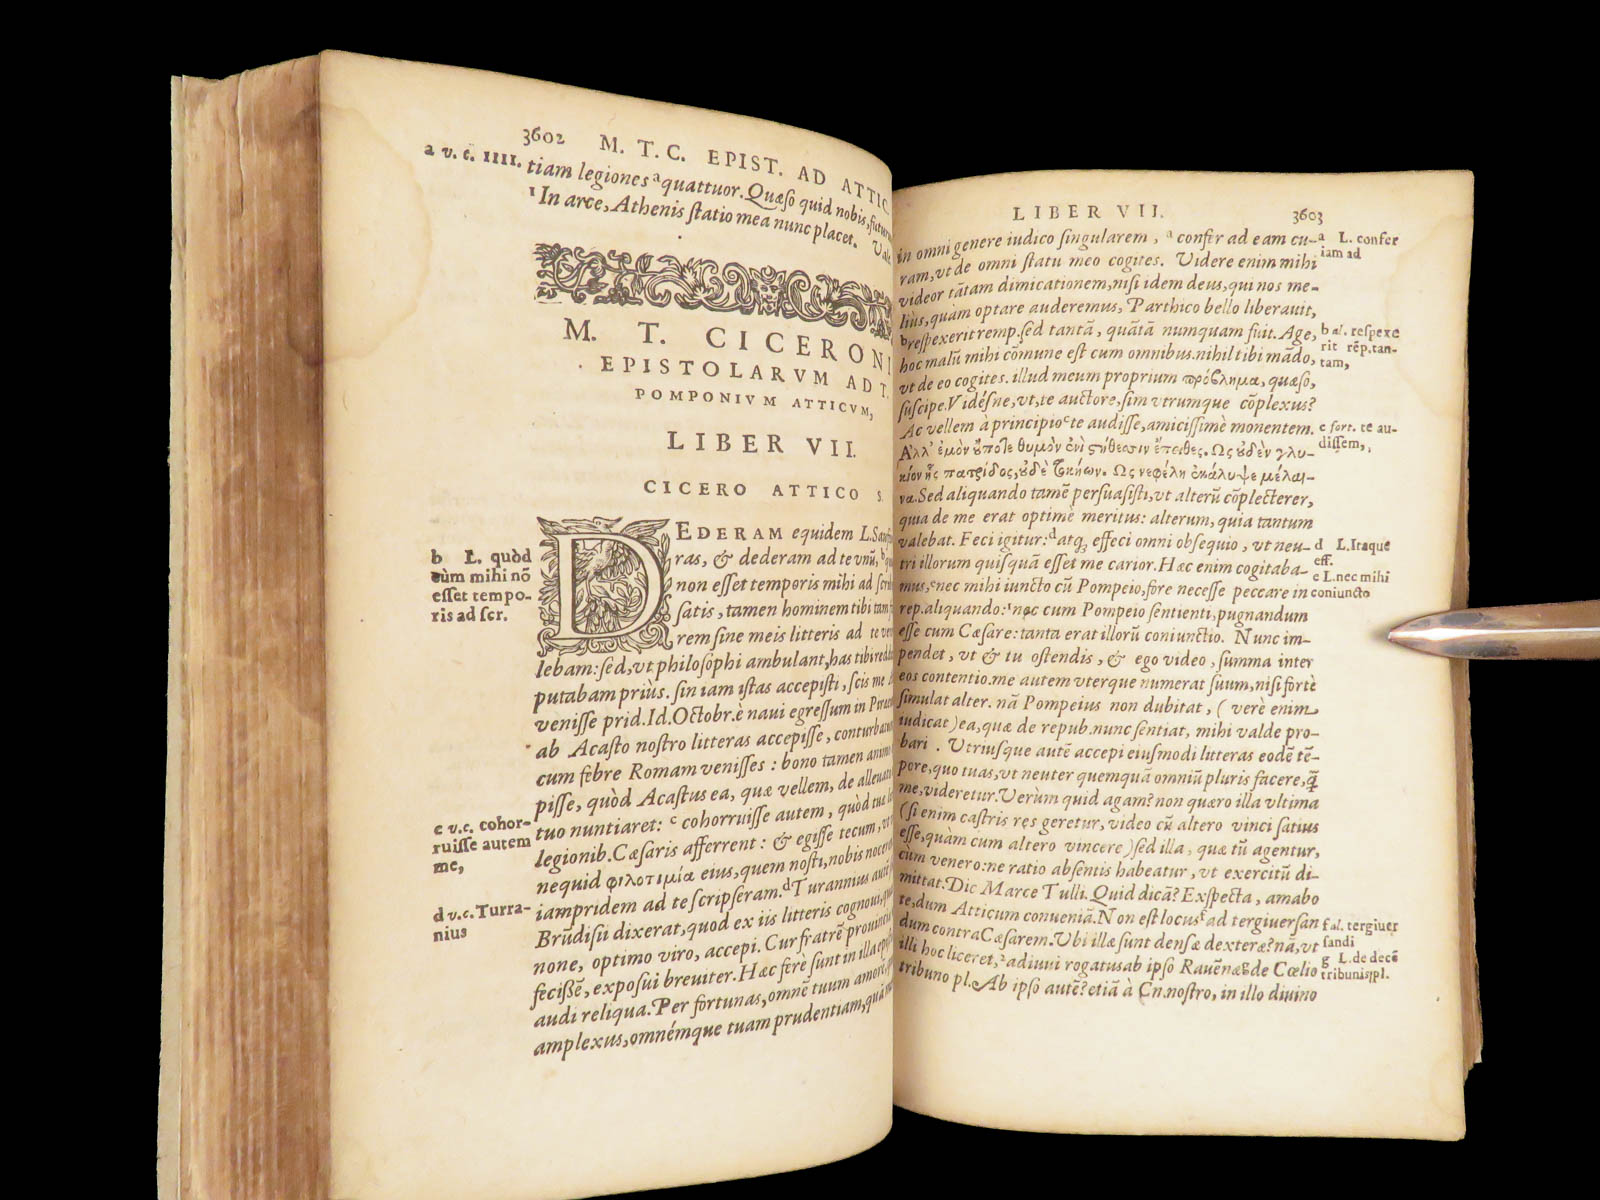 3602 M. T. C. EPIST. AD ATTIC.
a v. c. IIII.
tiam legiones ᵃquattuor. Quæso quid nobis, futur
¹In arce, Athenis statio mea nunc placet. Vale
M. T. CICERONI
EPISTOLARVM AD T.
POMPONIVM ATTICVM,
LIBER VII.
CICERO ATTICO S.
DEDERAM equidem L. Sauf
ras, & dederam ad te vnũ, ᵇq
non esset temporis mihi ad scri
satis, tamen hominem tibi tam
rem sine meis litteris ad te ve
lebam: sed, vt philosophi ambulant, has tibi redd
putabam priùs. sin iam istas accepisti, scis me
venisse prid. Id. Octobr. è naui egressum in Pir
ab Acasto nostro litteras accepisse, conturb
cum febre Romam venisses: bono tamen anim
pisse, quòd Acastus ea, quæ vellem, de alleua
tuo nuntiaret: ᶜcohorruisse autem, quòd tuæ
legionib. Cæsaris afferrent: & egisse tecum, vt
nequid φιλοτιμία eius, quem nosti, nobis noceret
iampridem ad te scripseram. ᵈTurannius autẽ
Brũdisii dixerat, quod ex iis litteris cognoui, qu
none, optimo viro, accepi. Cur fratrẽ prouinci
fecissẽ, exposui breuiter. Hæc ferè sunt in illa ep
audi reliqua. Per fortunas, omnẽ tuum amorẽ, q
amplexus, omnémque tuam prudentiam, quã m
b L. quòd
cùm mihi nõ
esset tempo-
ris ad scr.
c v.c. cohor-
ruisse autem
me,
d v.c. Turra-
nius
LIBER VII. 3603
in omni genere iudico singularem, ᵃconfer ad eam cu-
ram, vt de omni statu meo cogites. Videre enim mihi
videor tãtam dimicationem, nisi idem deus, qui nos me-
liùs, quàm optare auderemus, Parthico bello liberauit,
ᵇrespexerit remp. sed tantã, quãtã numquam fuit. Age,
hoc malũ mihi cõmune est cum omnibus. nihil tibi mãdo,
vt de eo cogites. illud meum proprium πρόβλημα, quæso,
suscipe. Vidésne, vt, te auctore, sim vtrumque cõplexus?
Ac vellem à principio ᶜte audisse, amicissimè monentem.
Αλλ’ ἐμὸν ὔποτε θυμὸν ἐνὶ στήθεσσιν ἔπειθες. Ως ὐδὲν γλυ-
κίον ἧς πατρίδος, ὐδὲ τοκήων. Ως νεφέλη ἐκάλυψε μέλαι-
να. Sed aliquando tamẽ persuasisti, vt alterũ cõplecterer,
quia de me erat optimè meritus: alterum, quia tantum
valebat. Feci igitur: ᵈatq; effeci omni obsequio, vt neu-
tri illorum quisquã esset me carior. Hæc enim cogitaba-
mus, ᵉnec mihi iuncto cũ Pompeio, fore necesse peccare in
rep. aliquando: ¹nec cum Pompeio sentienti, pugnandum
esse cum Cæsare: tanta erat illorũ coniunctio. Nunc im-
pendet, vt & tu ostendis, & ego video, summa inter
eos contentio. me autem vterque numerat suum, nisi fortè
simulat alter. nã Pompeius non dubitat, (verè enim
iudicat) ea, quæ de repub. nunc sentiat, mihi valde pro-
bari. Vtriusque autẽ accepi eiusmodi litteras eodẽ tẽ-
pore, quo tuas, vt neuter quemquã omniũ pluris facere, q̃
me, videretur. Verùm quid agam? non quæro illa vltima
(si enim castris res geretur, video cũ altero vinci satius
esse, quàm cum altero vincere) sed illa, quæ tũ agentur,
cùm venero: ne ratio absentis habeatur, vt exercitũ di-
mittat. Dic Marce Tulli. Quid dicã? Exspecta, amabo
te, dum Atticum conueniã. Non est locus ᶠad tergiuersan
dum contra Cæsarem. Vbi illæ sunt densæ dexteræ? nã, vt
illi hoc liceret, ²adiuui rogatus ab ipso Rauẽnæ ᵍde Cœlio
tribuno pl. Ab ipso autẽ? etiã à Cn. nostro, in illo diuino
a L. confer
iam ad
b al. respexe
rit rẽp. tan-
tam,
c fort. te au-
dissem,
d L. Itaque
eff.
e L. nec mihi
coniuncto
f al. tergiuer
sandi
g L. de decẽ
tribunis pl.